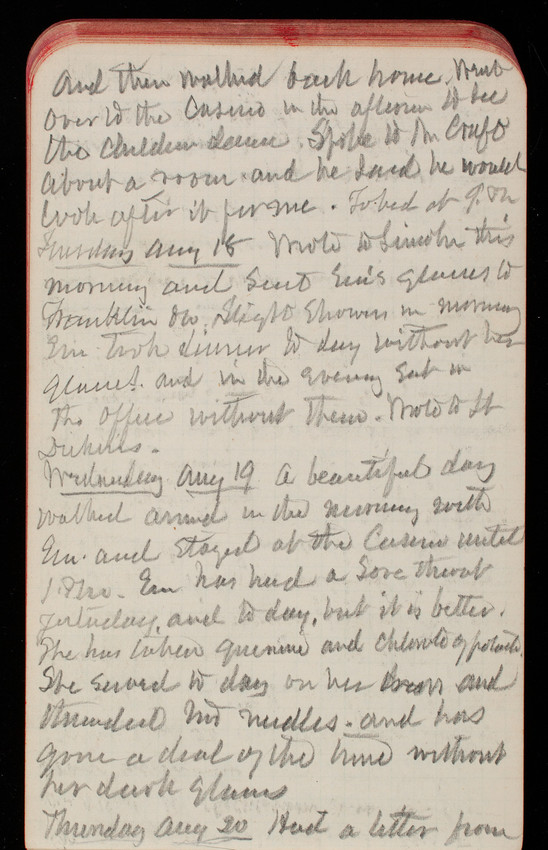 and then walked back home. Went
over to the Casino in the afternoon to see
the children dance. Spoke to Mr Craft
about a room and he said he would
look after it for me. To bed at 9.
Tuesday Aug 18 Wrote to Lincoln this
morning and sent Em's glasses to
Franklin & Co, slight showers in morning
Em took dinner to day without her
glasses. and in the evening sat in
the office without them. Wrote to St
Dickens.
Wednesday Aug 19 a beautiful day
walked around in the morning with
Em. and stayed at the Casino until
1. Em has had a Sore throat
yesterday, and to day, but it is better.
She has taken quinine and chlorate of potash.
She sewed to day on her dress and
threaded needles. and has
gone a deal of the time without
her dark glasses
Thursday Aug 20 Had a letter from